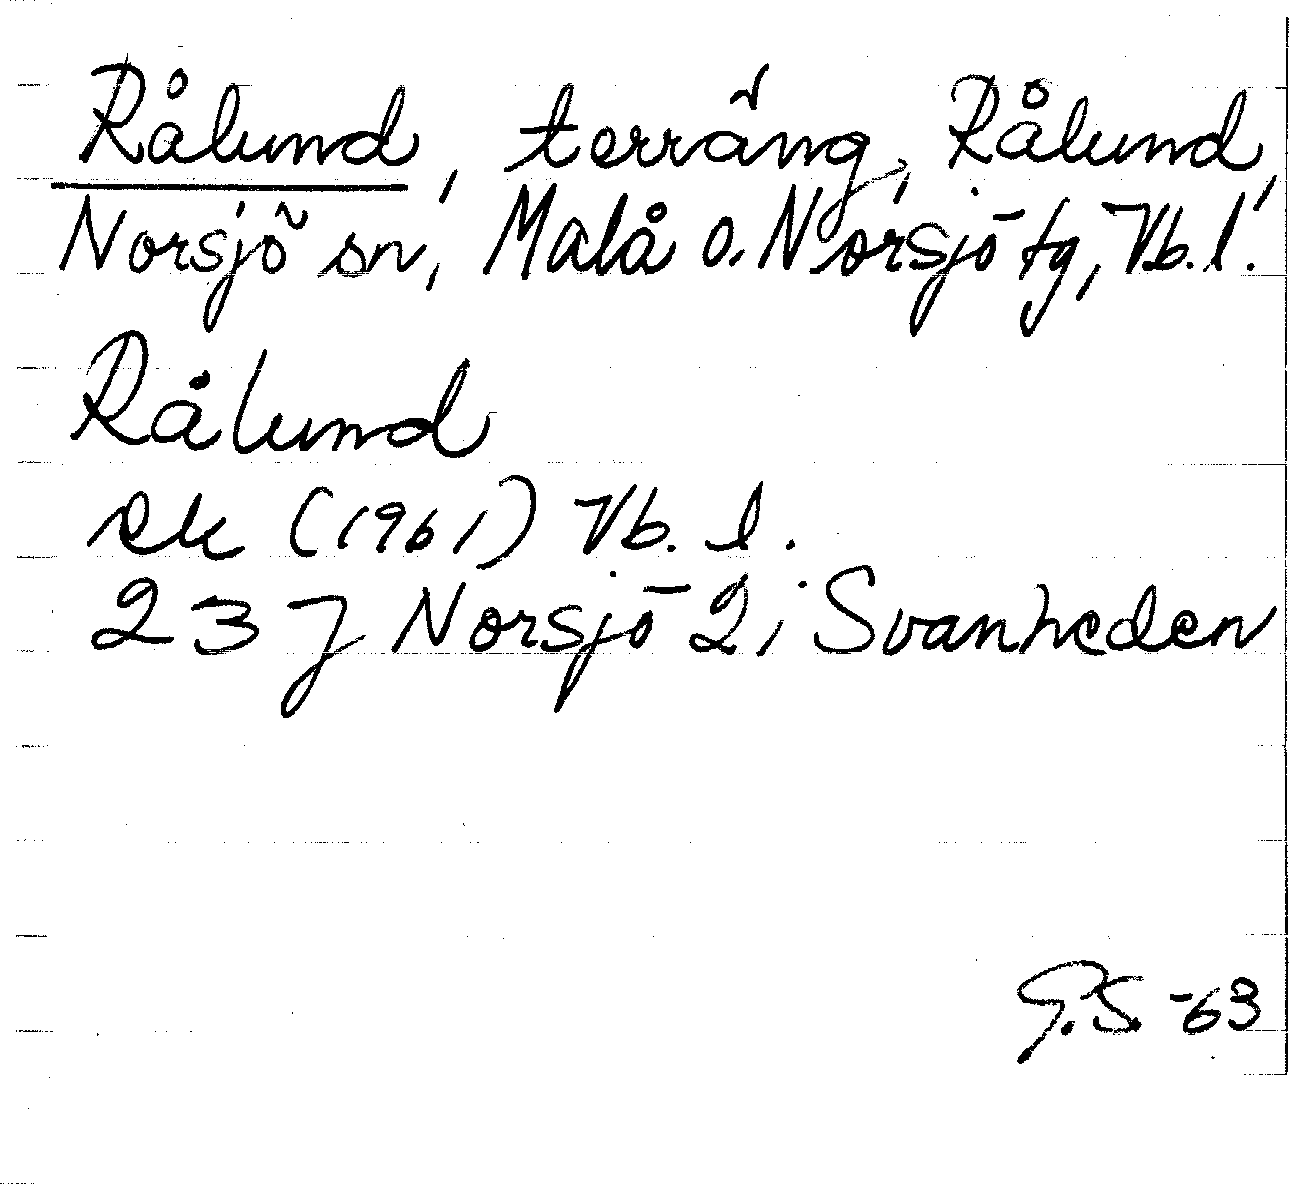 Rålund, terräng, Rålund,
Norsjö sn, Malå o. Norsjö tg, Vb. l.
Rålund
ek (1961) Vb. l.
23 J Norsjö 2, Svanheden
G.S. -63